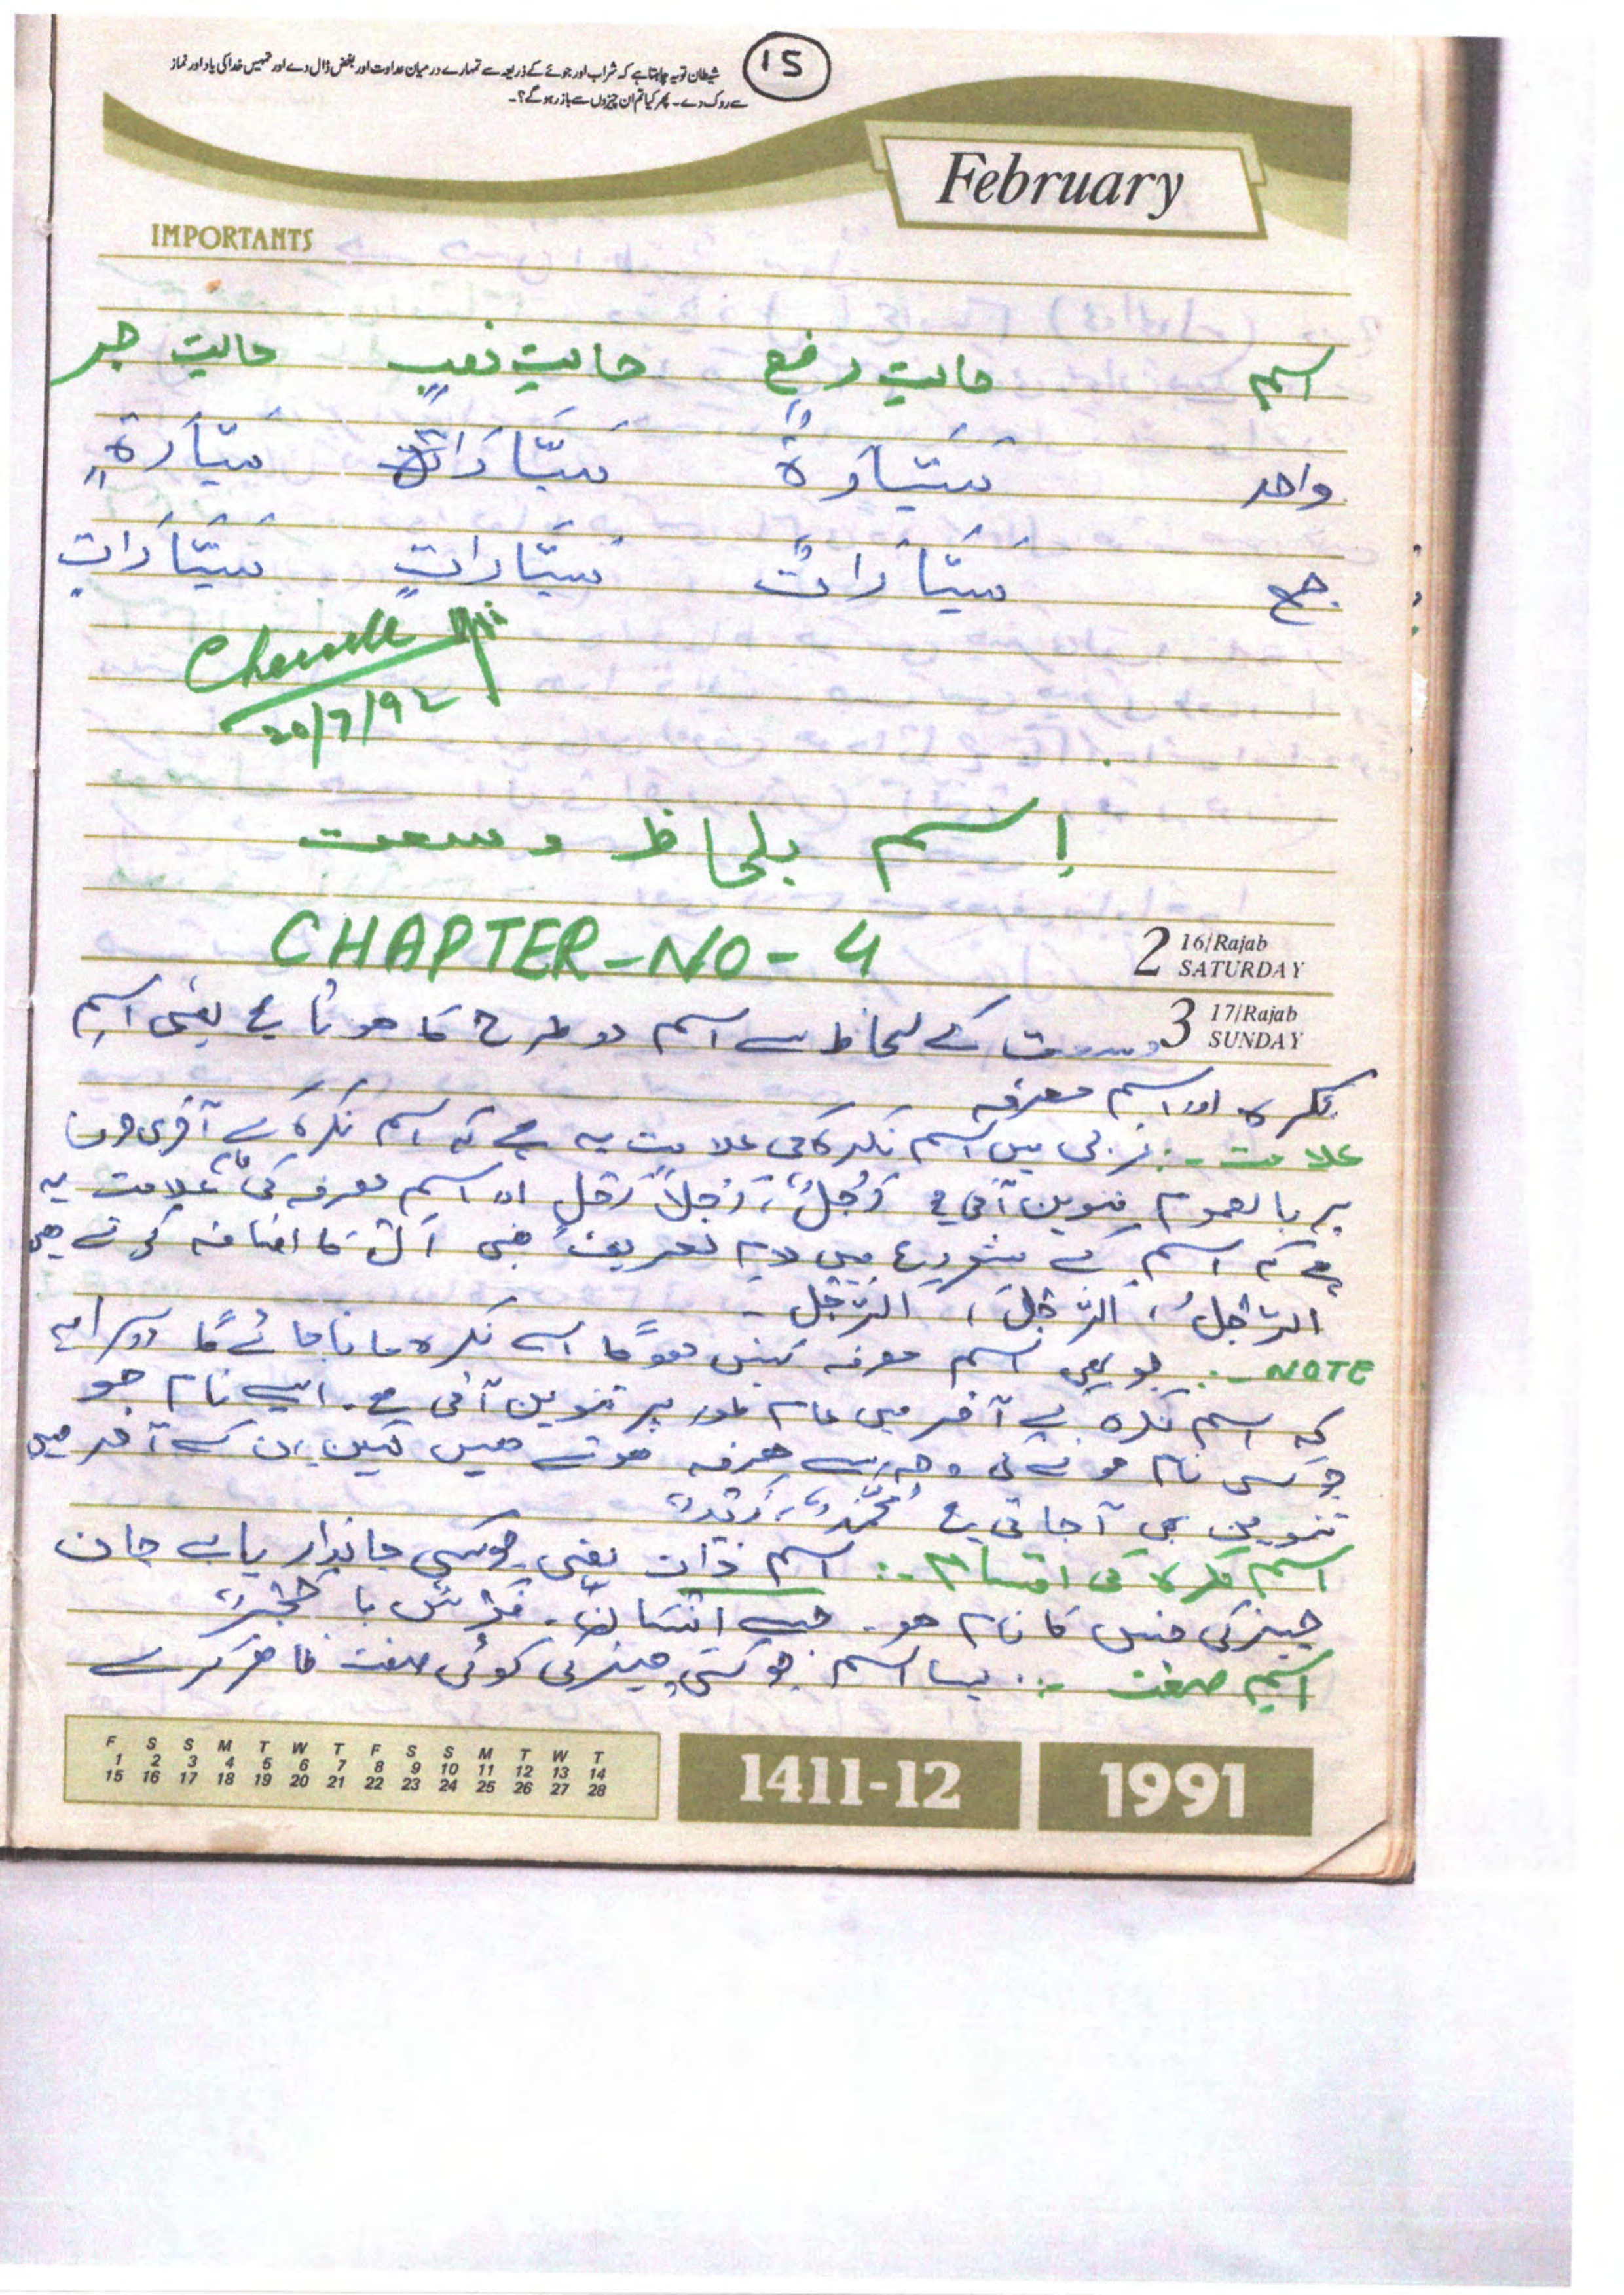 15
شیطان تو یہ چاہتا ہے کہ شراب اور جوئے کے ذریعہ سے تمہارے درمیان عداوت اور بغض ڈال دے اور تمہیں خدا کی یاد اور نماز
سے روک دے ۔ پھر کیا تم ان چیزوں سے باز رہو گے؟۔
February
IMPORTANTS
اسم حالتِ رفع حالتِ نصب حالتِ جر
واحد سَيَّارَةٌ سَيَّارَةً سَيَّارَةٍ
جمع سَيَّارَاتٌ سَيَّارَاتٍ سَيَّارَاتٍ
20/7/92
اِسم بلحاظ وسعت
CHAPTER-NO-4
2 16/Rajab SATURDAY
3 17/Rajab SUNDAY
وسعت کے لحاظ سے اسم دو طرح کا ہوتا ہے یعنی اسمِ
نکرہ اور اسم معرفہ
علامت -: عربی میں اسم نکرہ کی علامت یہ ہے کہ اسم نکرہ کے آخری حرف
پر بالعموم تنوین آتی ہے رَجُلٌ، رَجُلاً رَجُلٍ اور اسم معرفہ کی عام علامت یہ
ہے کہ اسم کے شروع میں لام تعریف یعنی اَل کا اضافہ کرتے ہیں
الرَّجُلُ، الرَّجُلَ، الرَّجُلِ -
NOTE -: جو بھی اسم معرفہ نہیں ہوگا اسے نکرہ مانا جائے گا دوسرا یہ
کہ اسم نکرہ کے آخر میں عام طور پر تنوین آتی ہے۔ ایسے نام جو
کسی نام ہونے کی وجہ سے معرفہ ہوتے ہیں لیکن ان کے آخر میں
تنوین بھی آ جاتی ہے مُحَمَّدٌ، زَیدٌ
اسم نکرہ کی اقسام -: اسم ذات یعنی جو کسی جاندار یا بے جان
چیز کی جنس کا نام ہو۔ جیسے اِنسَانٌ۔ فَرَسٌ یا حَجَرٌ
اسم صفت -: ایسا اسم جو کسی چیز کی کوئی صفت ظاہر کرے
F S S M T W T F S S M T W T
1 2 3 4 5 6 7 8 9 10 11 12 13 14
15 16 17 18 19 20 21 22 23 24 25 26 27 28
1411-12
1991